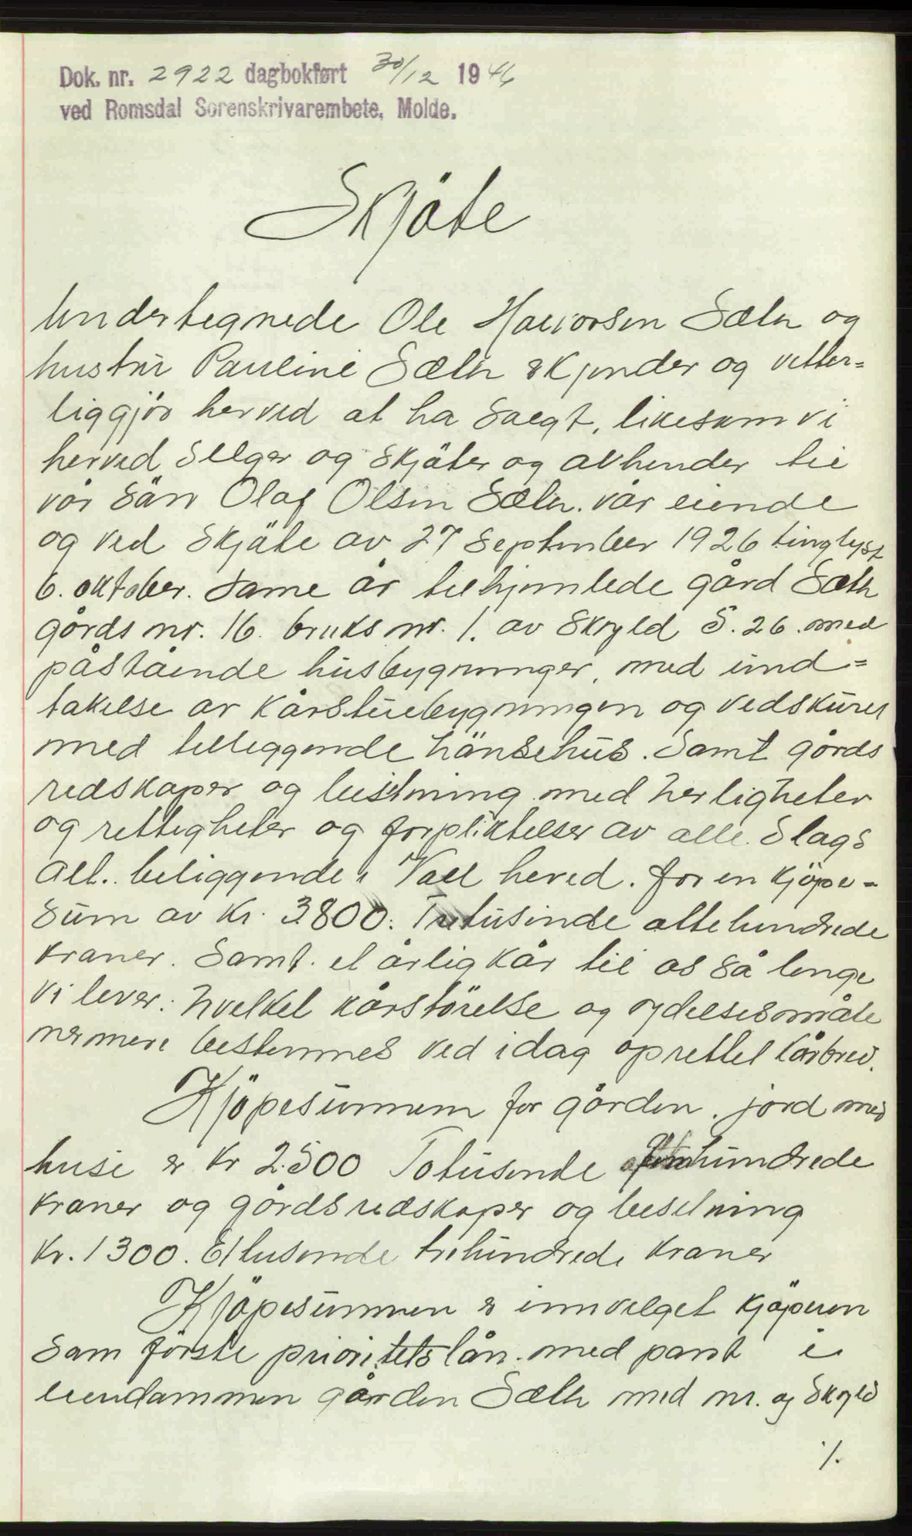 Dok. nr. 2922 dagbokført 30/12 1946
ved Romsdal Sorenskrivarembete, Molde.
Skjöte
Undertegnede Ole Halvorsen Sæth og
hustru Pauline Sæth skjönder og vitter=
liggjör herved at ha saalgt, likesom vi
herved selger og skjöter og avhender til
vör sön Olaf Olsen Sæth. vår eiende
og ved skjöte av 27 september 1926 tinglyst
6. oktober. same år tilhjemlede gård Sæth
gårds nr. 16. bruks nr. 1. av skyld 5.26. med
påstående husbygninger, med und=
takelse av kårstuebygningen og vedskuret
med tilleggende hönsehus. Samt gårds
redskaper og besetning med herligheter
og rettigheter og forpliktelser av alle slags
alt. beliggende i herred. for en kjöpe=
sum av kr. 3800. Tretusinde ottehundrede
kroner. Samt. et årlig kår til os så lenge
vi lever. hvilket kårstörelse og ydelsesmåte
nermere bestemmes ved idag oprettet kårbrev.
Kjöpesummen for gården. jord med
huse er kr 2500 Totusende femhundrede
kroner og gårdsredskaper og besetning
kr. 1300. Ettusende trehundrede kroner
Kjöpesummen er innvilget kjöperen
som förste prioritetslån. med pant i
eiendommen gården Sæth med nr. og skyld
./.